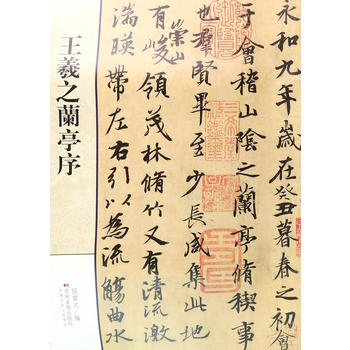 永和九年歲在癸丑暮春之初會
于會稽山陰之蘭亭脩稧事
也群賢畢至少長咸集此地
有崇山峻領茂林脩竹又有清流激
湍暎帶左右引以為流觴曲水
王羲之蘭亭序
孫寶文 編